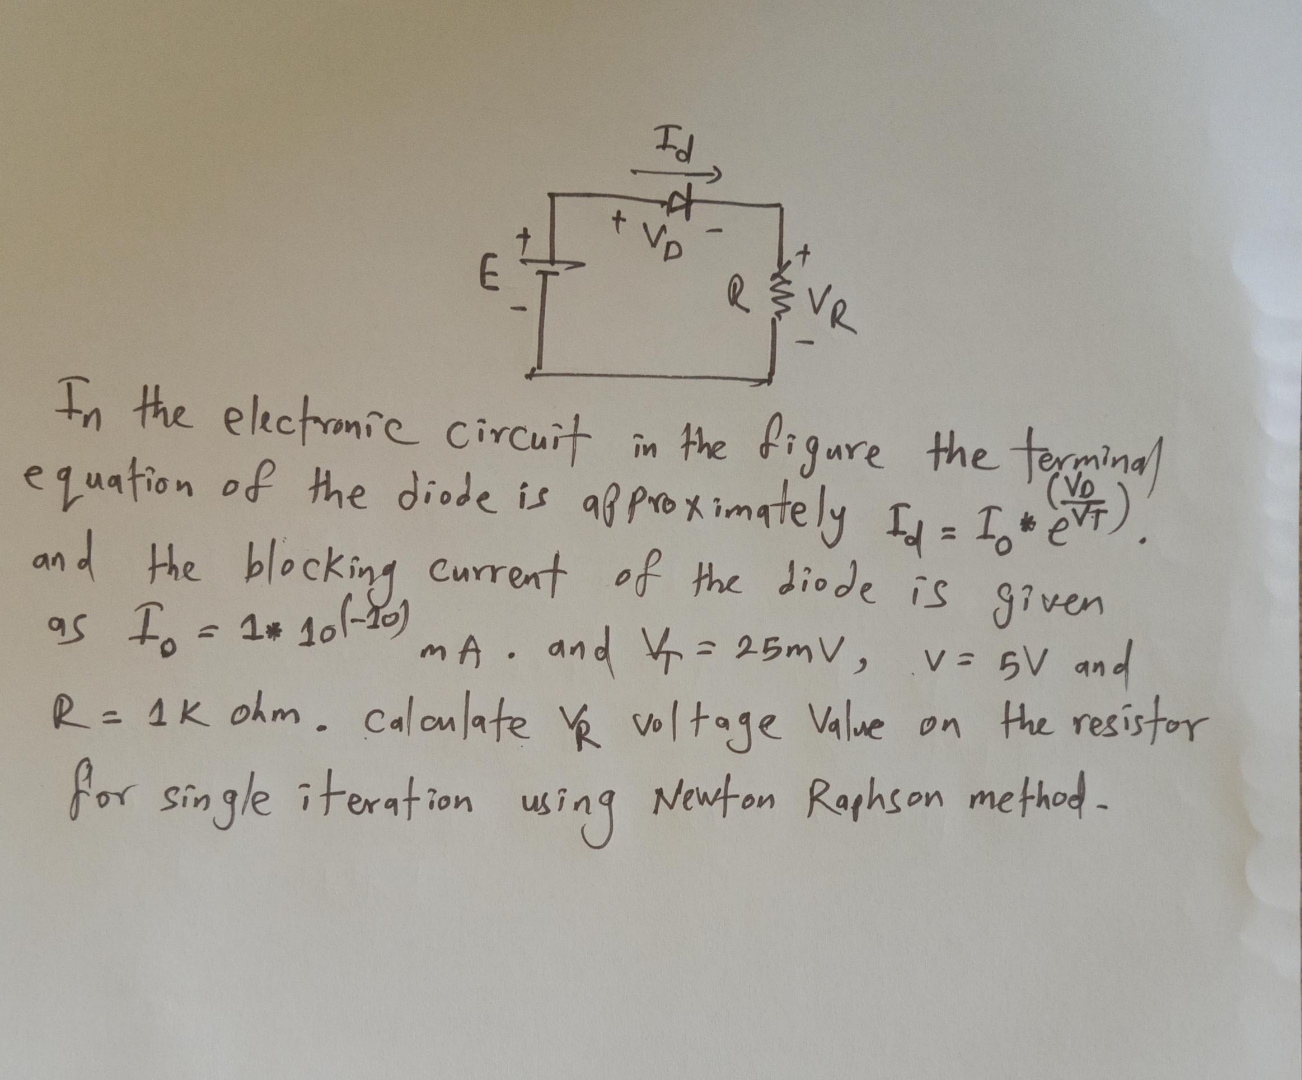 Id
+ VD -
+
E
-
R
+
VR
-
In the electronic circuit in the figure the terminal
equation of the diode is approximately Id = Io * e^(VD/VT).
and the blocking current of the diode is given
as Io = 1* 10(-10) mA. and VT = 25mV, V = 5V and
R = 1K ohm. calculate VR voltage Value on the resistor
for single iteration using Newton Raphson method.